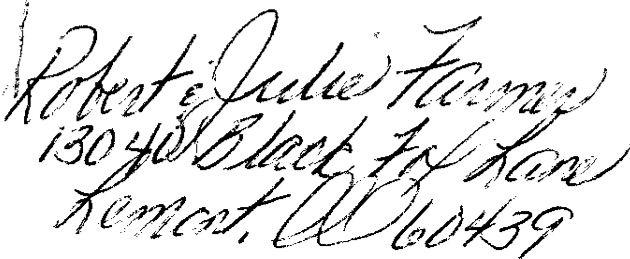 Robert & Julie Farmer
13040 Black Fox Lane
Lemont, Il 60439